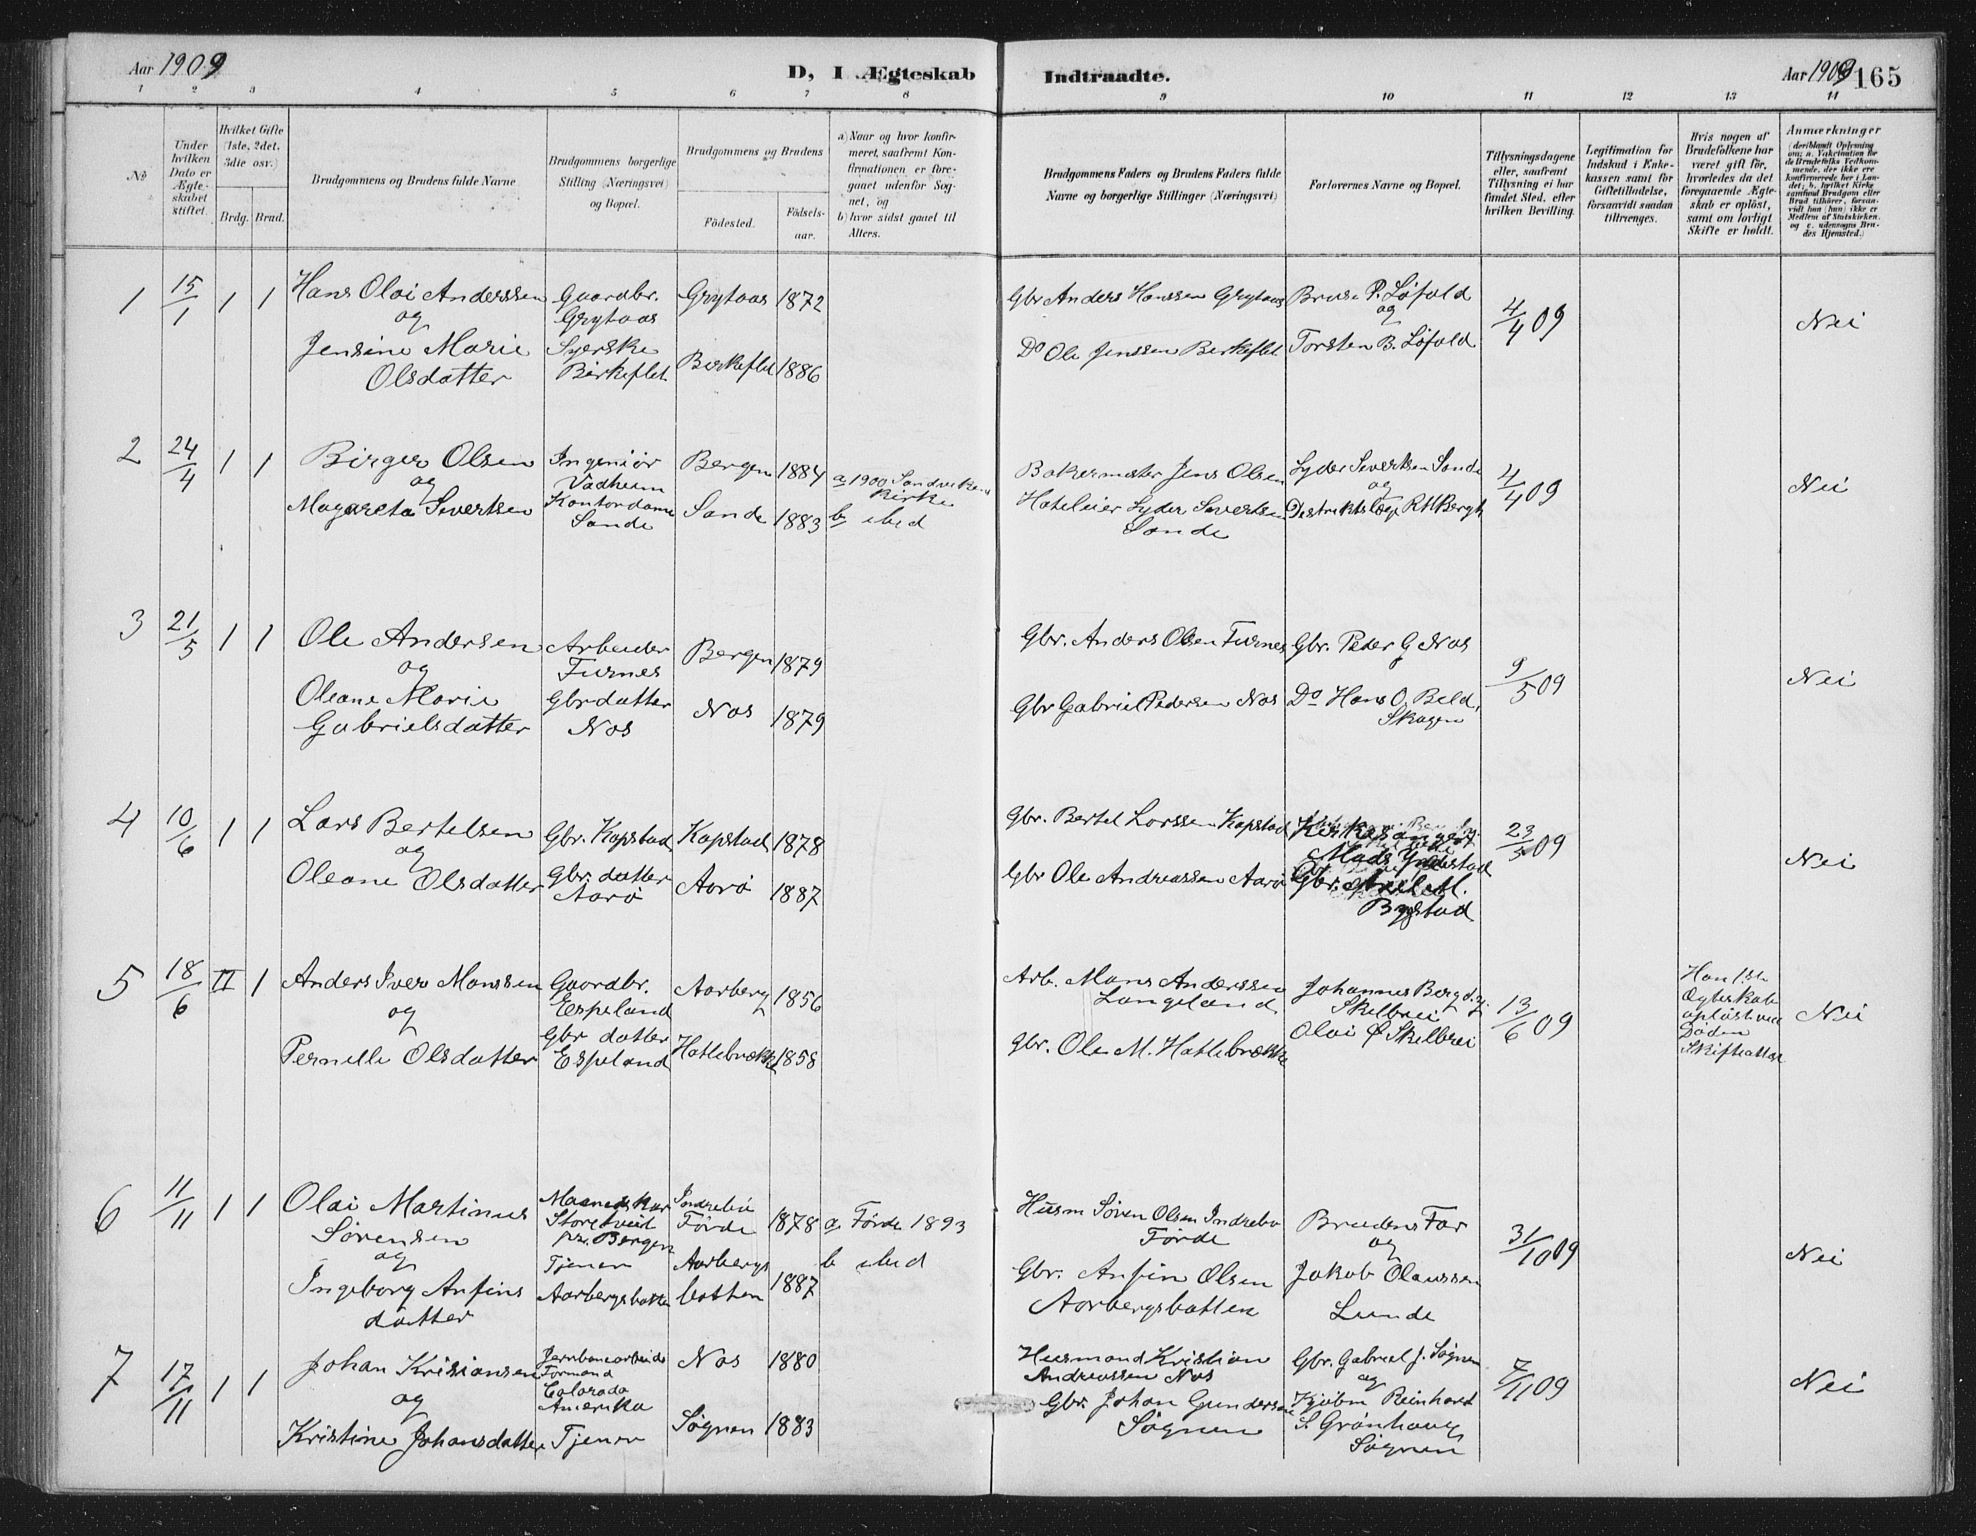 Aar 1909
D, I Ægteskab
Indtraadte.
Aar 1909 165
1 2 3 4 5 6 7 8 9 10 11 12 13 14
No
Under hvilken Dato er Ægteskabet stiftet.
Hvilket Gifte (1ste, 2det, 3die osv.)
Brdg. Brud.
Brudgommens og Brudens fulde Navne
Brudgommens borgerlige Stilling (Næringsvei) og Bopæl.
Brudgommens og Brudens
Födested. Födselsaar.
a) Naar og hvor konfirmeret, saafremt Konfirmationen er foregaaet udenfor Sognet, og
b) hvor sidst gaaet til Alters.
Brudgommens Faders og Brudens Faders fulde Navne og borgerlige Stillinger (Næringsvei)
Forlovernes Navne og Bopæl.
Tillysningsdagene eller, saafremt Tillysning ei har fundet Sted, Ifr. hvilken Bevilling.
Legitimation for Indskud i Enkekassen samt for Giftetilladelse, forsaavidt saadan tiltrænges.
Hvis nogen af Brudefolkene har været gift för, hvorledes da det foregaaende Ægteskab er oplöst, samt om lovligt Skifte er holdt.
Anmærkninger
1 15/1 1 1
Hans Olai Anderssen
og
Jensine Marie
Olsdatter
Gaardbr.
Grytaas
Syerske
Birkeflet
Grytaas 1872
Birkeflet 1886
Gbr Anders Hanssen Grytaas
Do Ole Jenssen Birkeflet
Brede P. Løfald
og
Torsten B. Løfald
4/4 09
Nei
2 24/4 1 1
Birger Olsen
og
Magareta Sivertsen
Ingeniør
Vadheim
Kontordame
Sande
Bergen 1884
Sande 1883
a 1900 Sandvikens
Kirke
b ibid
Bakermester Jens Olsen
Hoteleier Lyder Sivertsen
Sande
Lyder Sivertsen Sande
og
Distriktslæge R H Bergh
4/4 09
Nei
3 21/5 1 1
Ole Andersen
og
Oleane Marie
Gabrielsdatter
Arbeider
Furnes
Gbrdatter
Nos
Bergen 1879
Nos 1879
Gbr. Anders Olsen Furnes
Gbr Gabriel Pedersen Nos
Gbr. Peder G Nos
Do Hans O. Beld,
Skagen
9/5 09
Nei
4 10/6 1 1
Lars Bertelsen
og
Oleane Olsdatter
Gbr. Kapstad
Gbr. datter
Aarø
Kapstad 1878
Aarø 1887
Gbr. Bertel Larssen Kapstad
Gbr Ole Andreassen Aarø
Kirkesanger
Mads Yndestad
Gbr. M.
Bygstad
23/5 09
Nei
5 18/6 II 1
Anders Iver Monssen
og
Pernille Olsdatter
Gaardbr.
Espeland
Gbr datter
Espeland
Aarberg 1856
Hatlebrække 1858
Arb. Mons Anderssen
Langeland
Gbr. Ole M. Hatlebrække
Johannes Berg d. y.
Skelbrei
Olai Ø Skelbrei
13/6 09
Han 1ste
Ægteskab
opløst ved
Døden
Skifteattest
Nei
6 11/11 1 1
Olai Martinus
Sørensen
og
Ingeborg Anfins
datter
Storetveit
pr. Bergen
Tjener
Aarbergsbotten
Indrebø
Førde 1878
Aarbergs
botten 1887
a Førde 1893
b ibid
Husm Søren Olsen Indrebø
Førde
Gbr. Anfin Olsen
Aarbergsbotten
Brudens Far
og
Jakob Olaussen
Lunde
31/10 09
Nei
7 17/11 1 1
Johan Kristiansen
og
Kristine Johansdatter
Jernbanearbeids
Formand
Colorado
Amerika
Tjener
Nos 1880
Søgnen 1883
Husmand Kristian
Andreassen Nos
Gbr. Johan Gundersen
Søgnen
Gbr. Gabriel J. Søgnen
og
Kjøbm Reinhard
S. Grønhaug
Søgnen
7/11 09
Nei